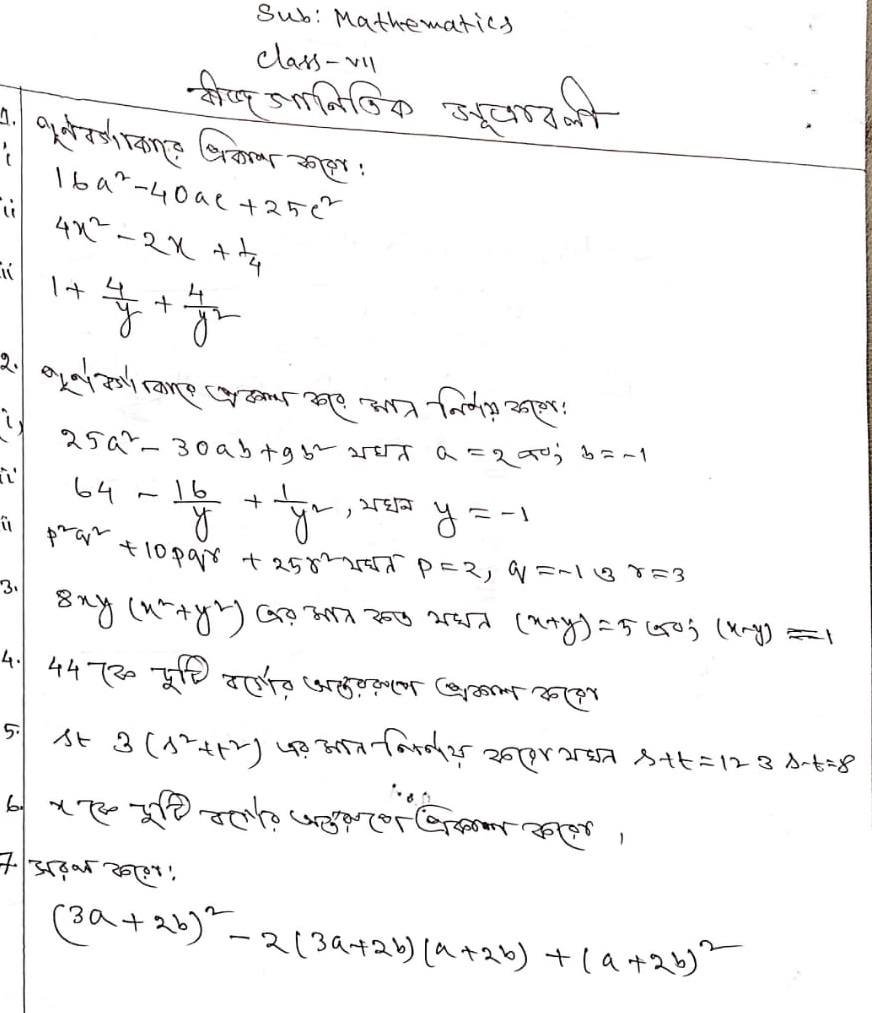 Sub: Mathematics
Class - VII
বীজগানিতিক সূত্রাবলী
1. পূর্নবর্গাকারে প্রকাশ করো:
i 16a² - 40ac + 25c²
ii 4x² - 2x + 1/4
iii 1 + 4/y + 4/y²
2. পূর্নবর্গাকারে প্রকাশ করে মান নির্নয় করো:
i, 25a² - 30ab + 9b² যখন a = 2 এবং b = -1
ii 64 - 16/y + 1/y², যখন y = -1
iii p²q² + 10pqr + 25r² যখন p = 2, q = -1 ও r = 3
3. 8xy (x² + y²) এর মান কত যখন (x+y) = 5 এবং (x-y) = 1
4. 44 কে দুটি বর্গের অন্তররূপে প্রকাশ করো
5. st ও (s² + t²) এর মান নির্নয় করো যখন s+t = 12 ও s-t = 8
6. x কে দুটি বর্গের অন্তররূপে প্রকাশ করো,
7. সরল করো:
(3a + 2b)² - 2(3a+2b) (a+2b) + (a+2b)²